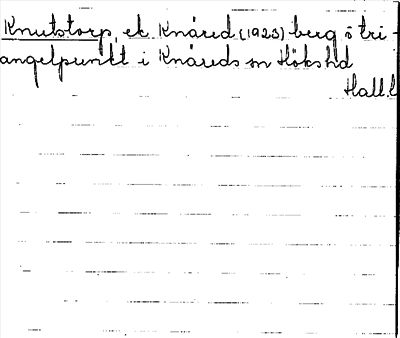 Knutstorp, ek. Knäred (1923) berg o tri-
angelpunkt i Knäreds sn Hökshd
Hall.l